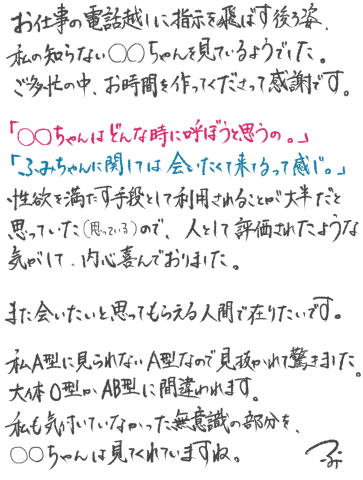 お仕事の電話越しに指示を飛ばす後ろ姿、
私の知らない○○ちゃんを見ているようでした。
ご多忙の中、お時間を作ってくださって感謝です。
「○○ちゃんはどんな時に呼ぼうと思うの。」
「ふみちゃんに関しては会いたくて来てるって感じ。」
性欲を満たす手段として利用されることが大半だと
思っていた(思っている)ので、人として評価されたような
気がして、内心喜んでおりました。
また会いたいと思ってもらえる人間で在りたいです。
私A型に見られないA型なので見抜かれて驚きました。
大体O型かAB型に間違われます。
私も気付いていなかった無意識の部分を、
○○ちゃんは見てくれていますね。
ふみ